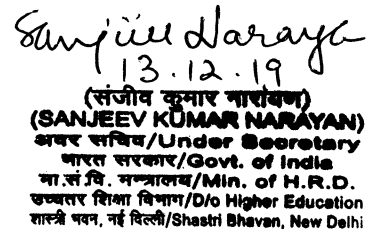 Sanjeev Naraya
13.12.19
(संजीव कुमार नारायण)
(SANJEEV KUMAR NARAYAN)
अवर सचिव/Under Secretary
भारत सरकार/Govt. of India
मा.सं.वि. मन्त्रालय/Min. of H.R.D.
उच्चतर शिक्षा विभाग/D/o Higher Education
शास्त्री भवन, नई दिल्ली/Shastri Bhavan, New Delhi